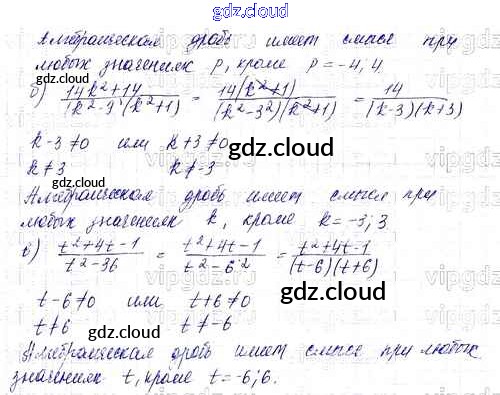 gdz.cloud
Алгебраическая дробь имеет смысл при
любых значениях p, кроме p = -4, 4.
б) 14k²+14 / (k²-9)(k²+1) = 14(k²+1) / (k²-3²)(k²+1) = 14 / (k-3)(k+3)
k-3≠0 или k+3≠0
k≠3 k≠-3
Алгебраическая дробь имеет смысл при
любых значениях k, кроме k = -3; 3
в) t²+4t-1 / t²-36 = t²+4t-1 / t²-6² = t²+4t-1 / (t-6)(t+6)
t-6≠0 или t+6≠0
t≠6 t≠-6
Алгебраическая дробь имеет смысл при любых
значениях t, кроме t = -6; 6.